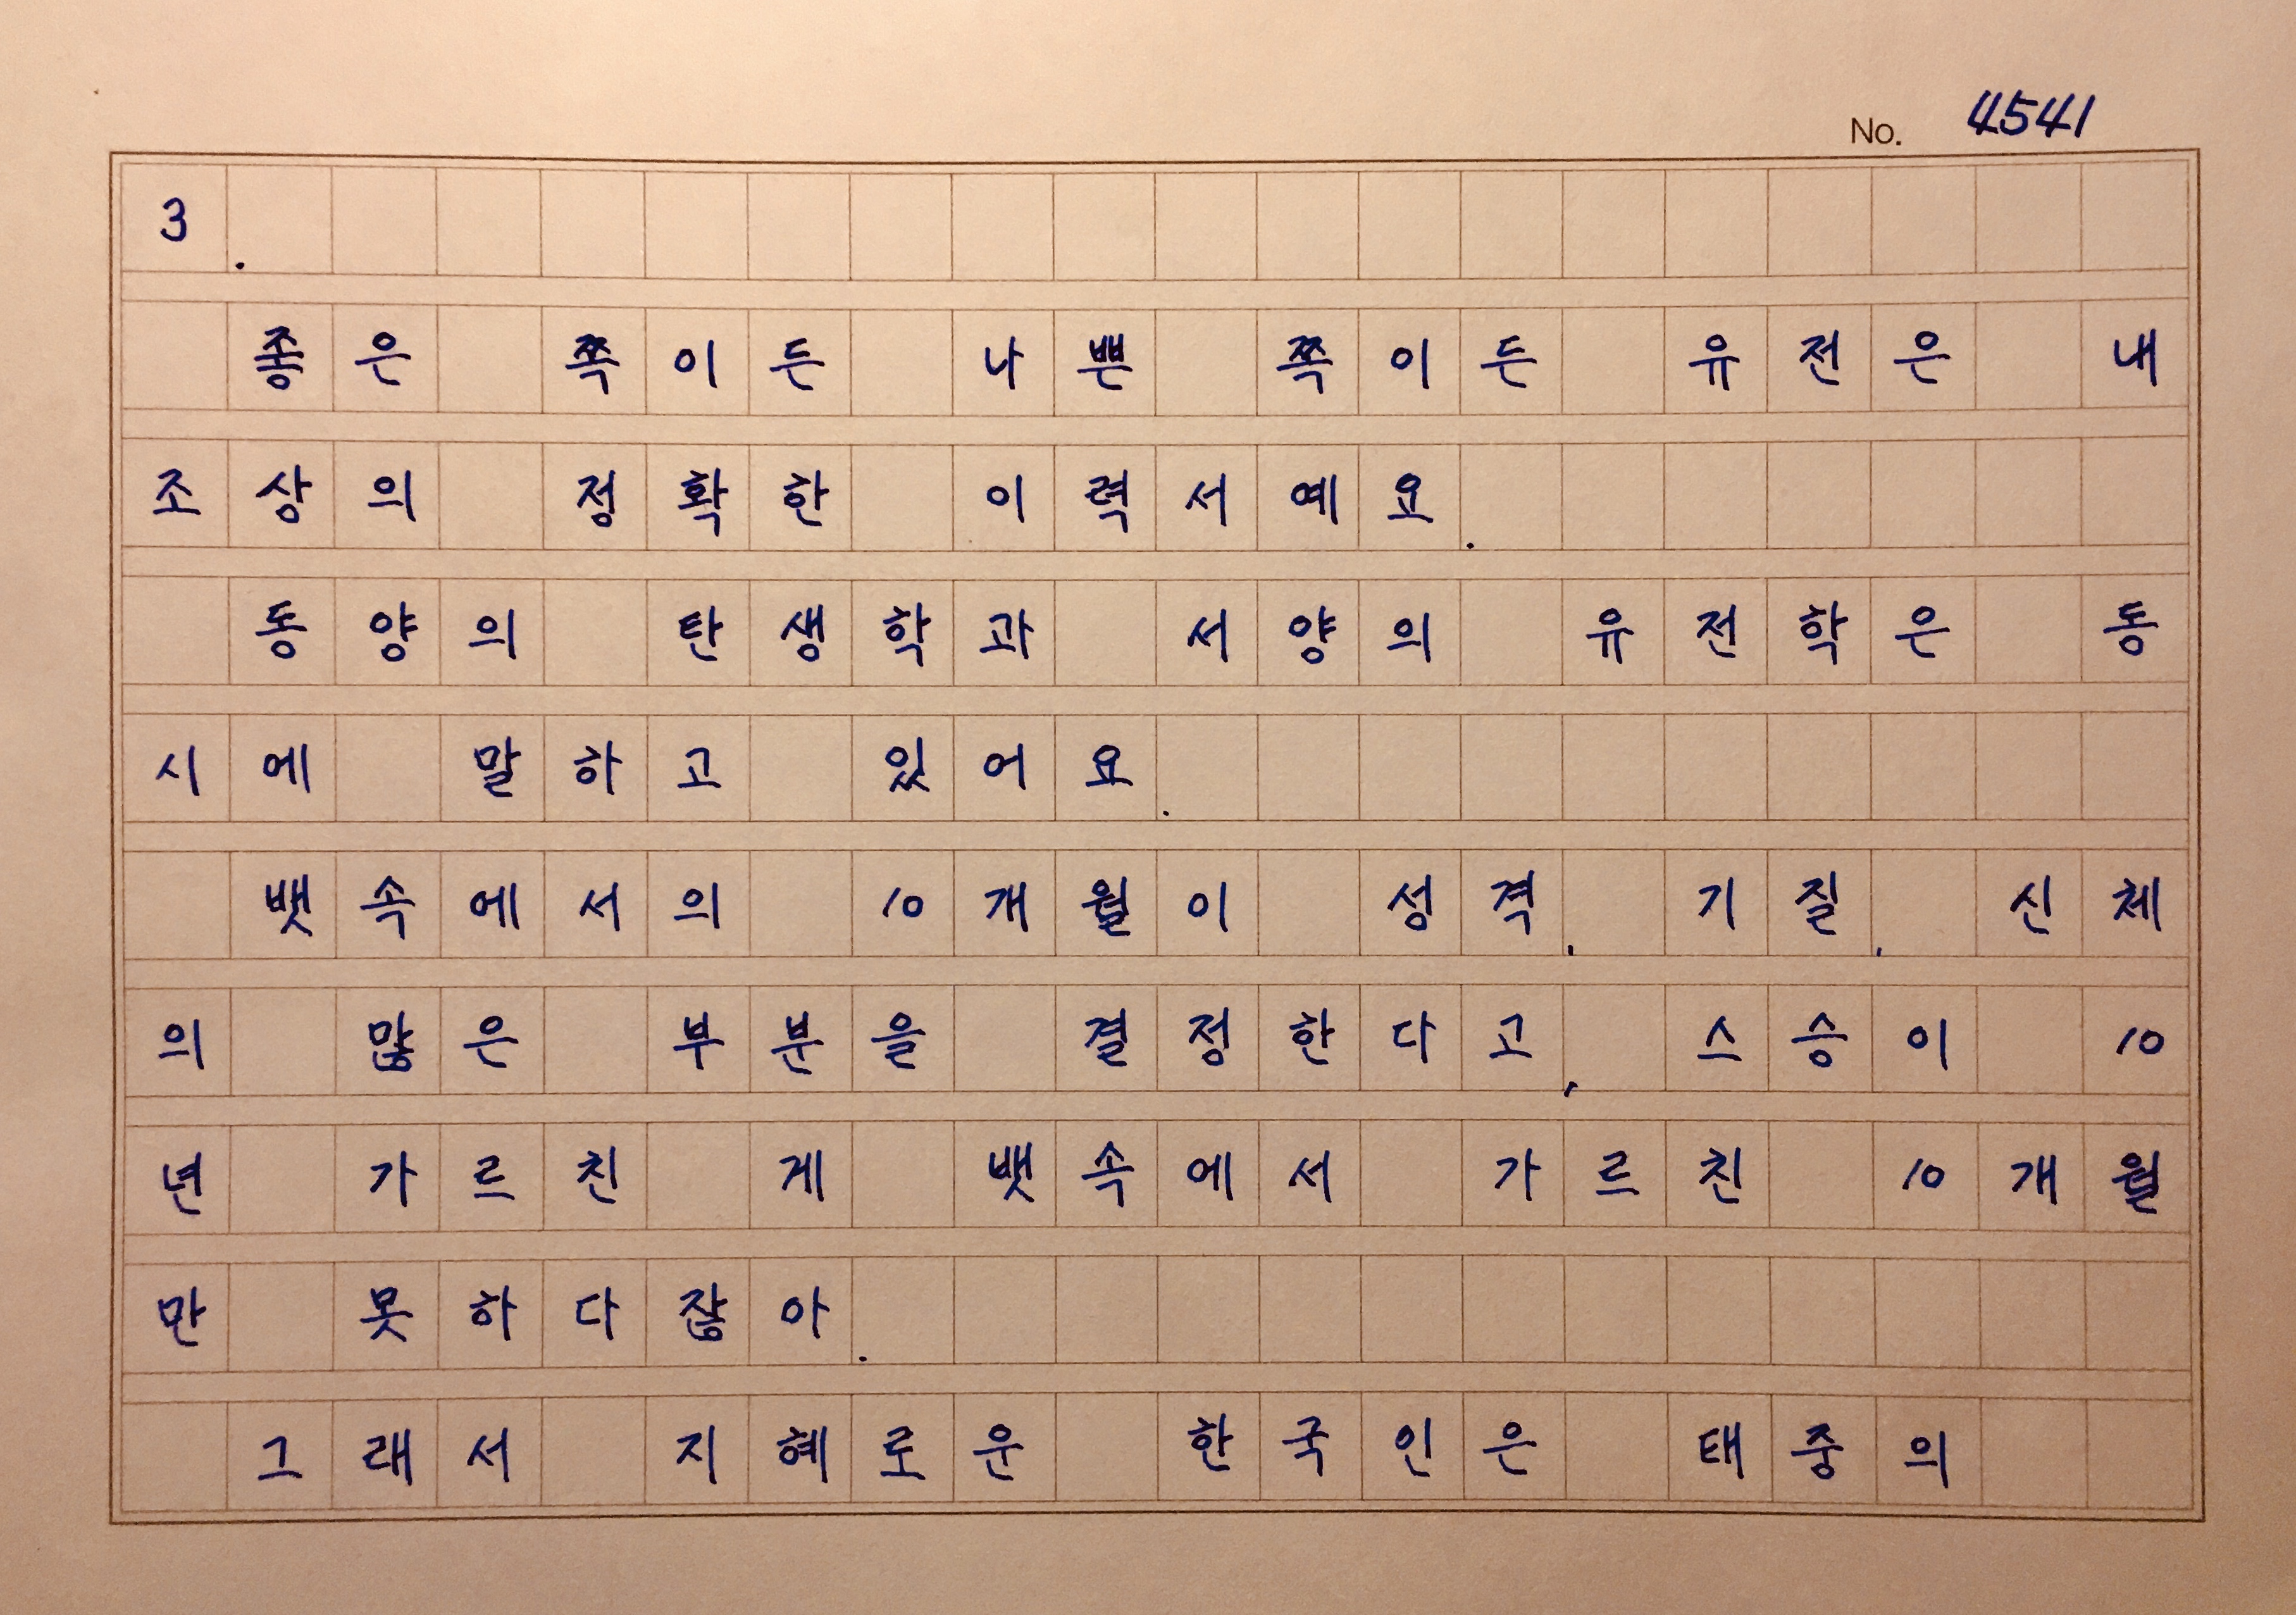 No. 4541
3.
좋은 쪽이든 나쁜 쪽이든 유전은 내
조상의 정확한 이력서예요.
동양의 탄생학과 서양의 유전학은 동
시에 말하고 있어요.
뱃속에서의 10개월이 성격, 기질, 신체
의 많은 부분을 결정한다고, 스승이 10
년 가르친 게 뱃속에서 가르친 10개월
만 못하다잖아.
그래서 지혜로운 한국인은 태중의